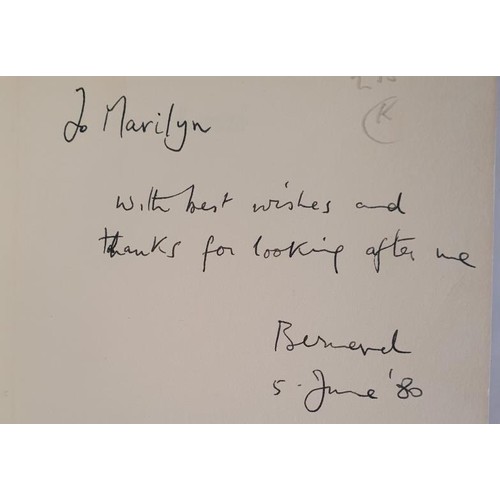 To Marilyn
with best wishes and
thanks for looking after me
Bernard
5 - June '80